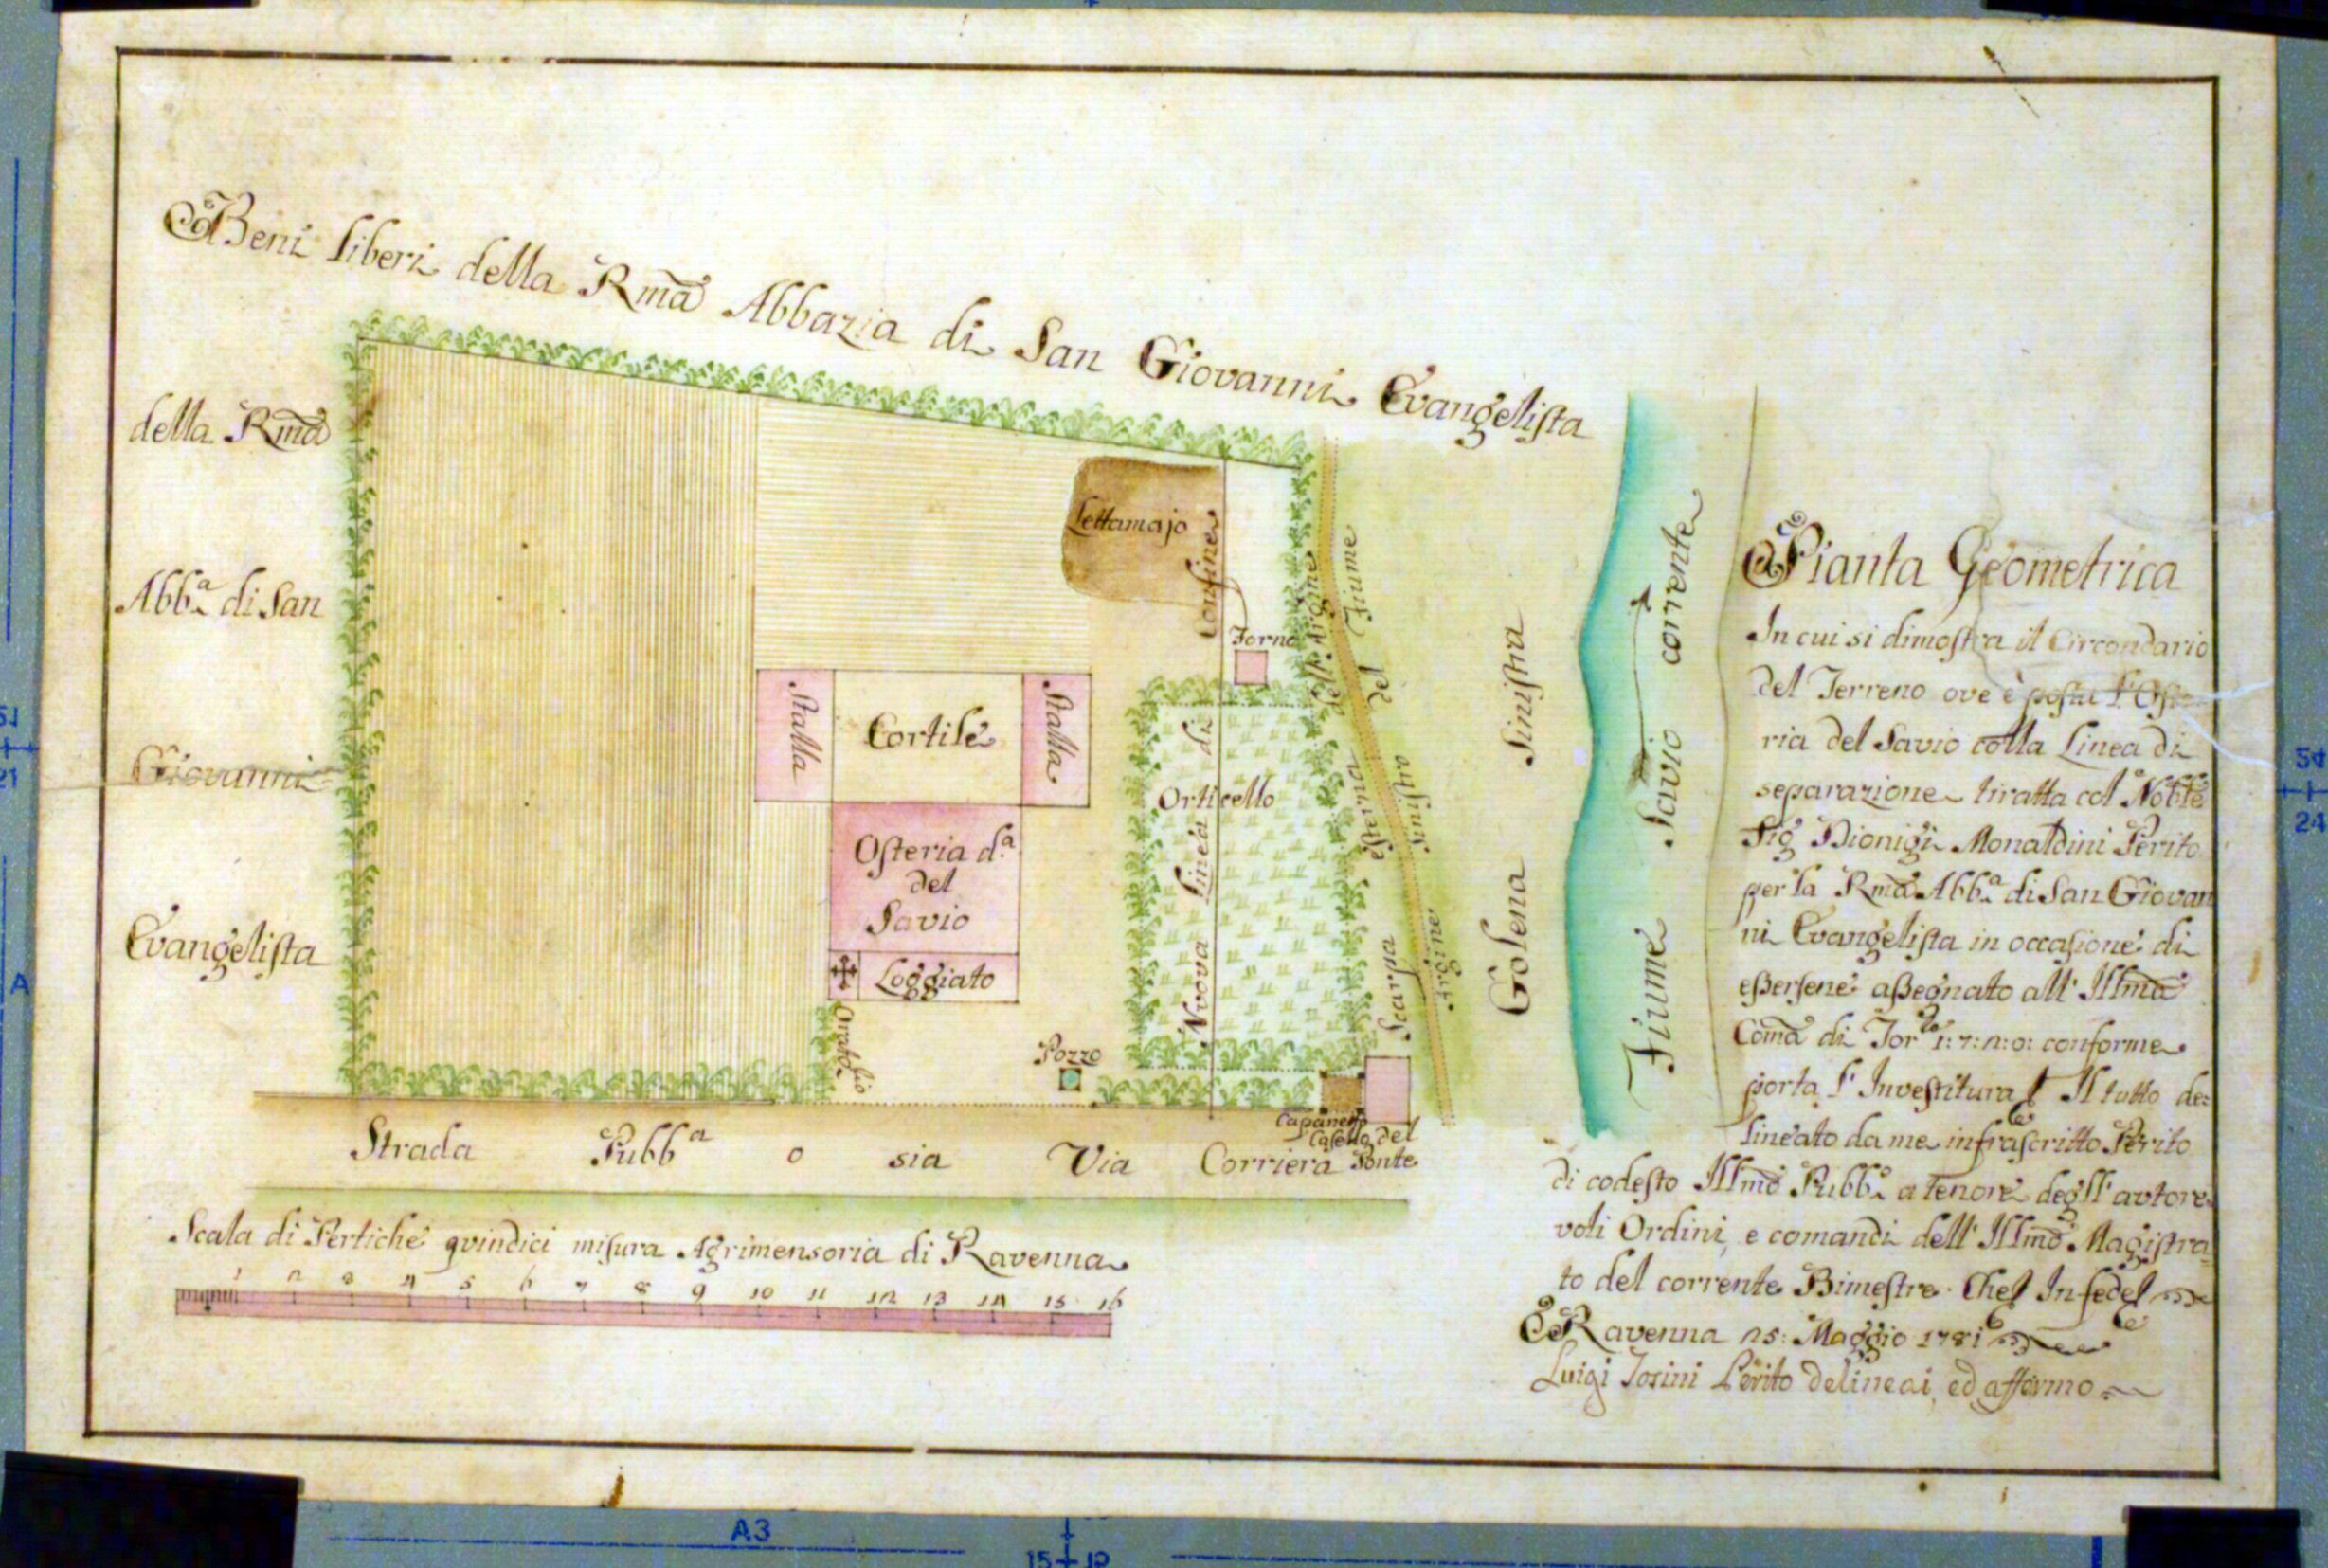 Beni liberi della Rma Abbazia di San Giovanni Evangelista
della Rma
Abba di San
Giovanni
Evangelista
Lettamajo
Forno
Stalla
Cortile
Stalla
Orticello
Osteria da
del
Savio
Loggiato
Oratorio
Pozzo
Nuova Linea di Confine
Scarpa esterna dell' Argine
Argine Sinistro del Fiume
Golena Sinistra
Fiume Savio corrente
Capaneto
Casella del
Ponte
Strada Pubba o sia Via Corriera
Scala di Pertiche quindici misura Agrimensoria di Ravenna
1 2 3 4 5 6 7 8 9 10 11 12 13 14 15 16
Pianta Geometrica
In cui si dimostra il Circondario
del Terreno ove è posta l'Oste
ria del Savio colla Linea di
separazione tiratta col Noble
Sig Dionigi Monaldini Perito
per la Rma Abba di San Giovan
ni Evangelista in occasione di
essersene assegnato all' Illma
Coma di Tore 1:7:2:0: conforme
porta l' Investitura Il tutto de=
lineato da me infrascritto Perito
di codesto Illmo Pubbo a tenore degll' autore
voli Ordini, e comandi dell' Illmo Magistra
to del corrente Bimestre. Che In fede
Ravenna 25: Maggio 1781
Luigi Tosini Perito delineai, ed affermo
A3
15 12
54
24
51
21
A